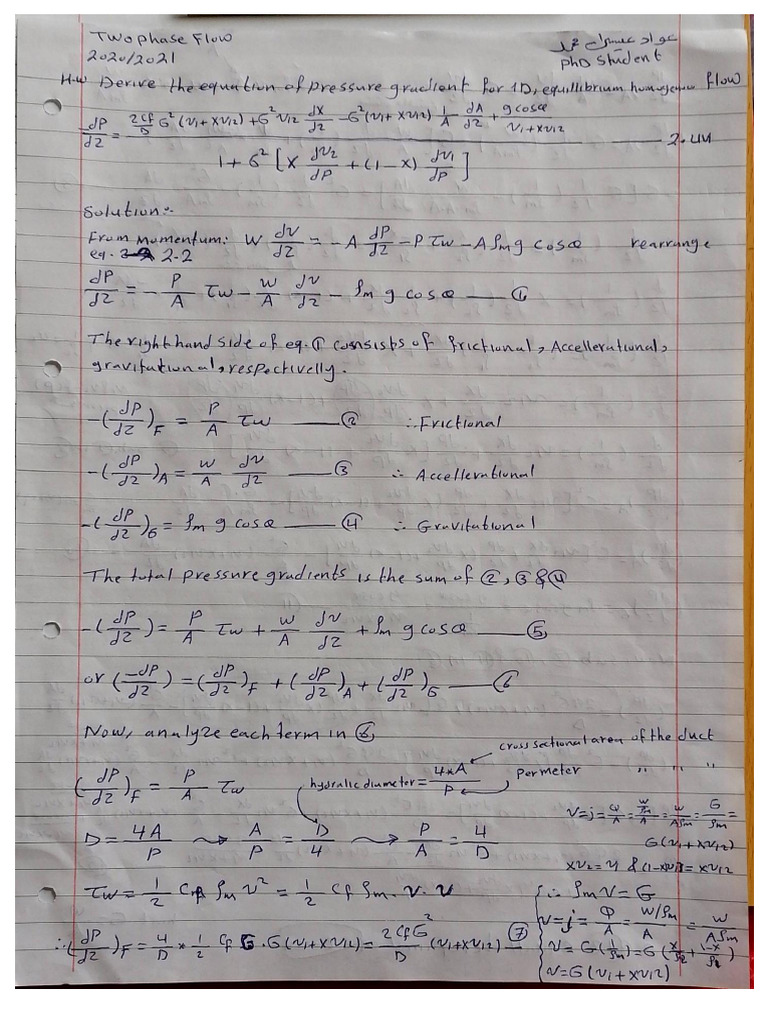 Two phase Flow
عواد عيسى محمد
2020/2021
PhD Student
H.W Derive the equation of pressure gradient for 1D, equillibrium homogenous flow
-dP/dz = [2Cf/D G² (v1+xv12) + G² v12 dx/dz - G² (v1+xv12) 1/A dA/dz + g cosθ/(v1+xv12)] / [1+G² [x dv2/dP + (1-x) dv1/dP]] — 2.44
Solution:-
From Momentum: W dv/dz = -A dP/dz - P τw - A ρm g cosθ rearrange
eq. 2-2
dP/dz = -P/A τw - W/A dv/dz - ρm g cosθ — ①
The right hand side of eq. ① consists of frictional, Accellerational,
gravitational, respectivelly.
-(dP/dz)F = P/A τw — ② ∴ Frictional
-(dP/dz)A = W/A dv/dz — ③ ∴ Accellerational
-(dP/dz)G = ρm g cosθ — ④ ∴ Gravitational
The total pressure gradients is the sum of ②, ③ & ④
-(dP/dz) = P/A τw + W/A dv/dz + ρm g cosθ — ⑤
or (-dP/dz) = (dP/dz)F + (dP/dz)A + (dP/dz)G — ⑥
Now, analyze each term in ⑥
cross sectional area of the duct
(dP/dz)F = P/A τw
hydralic diameter = 4*A/P
Permeter " " "
D = 4A/P ⇝ A/P = D/4 ⇝ P/A = 4/D
v=j= Q/A = W/ρm/A = W/Aρm = G/ρm =
G(v1+xv12)
xv2=v1 & (1-x)v1 = xv12
τw = 1/2 Cf ρm v² = 1/2 Cf ρm . v . v
∴ ρm v = G
v=j= Q/A = W/ρm/A = W/Aρm
v = G(1/ρm) = G(x/ρ2 + 1-x/ρ1)
v=G(v1+xv12)
∴(dP/dz)F = 4/D * 1/2 Cf G . G(v1+xv12) = 2CfG²/D (v1+xv12) — ⑦